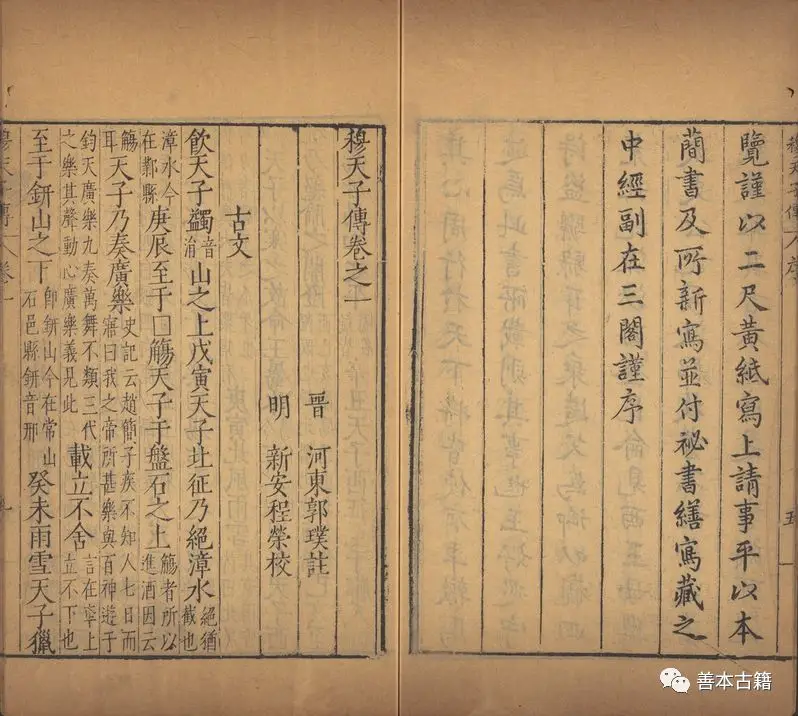 覽謹以二尺黃紙寫上請事平以本
蕑書及所新寫並付祕書繕寫藏之
中經副在三閣謹序
穆天子傳卷之一
晉 河東郭璞註
明 新安程榮校
古文
飲天子蠲音涓山之上戊寅天子北征乃絕漳水絕猶截也
漳水今在鄴縣庚辰至于□觴天子于盤石之上觴者所以進酒因云
觴耳天子乃奏廣樂史記云趙簡子疾不知人七日而寤曰我之帝所甚樂與百神遊于
鈞天廣樂九奏萬舞不類三代之樂其聲動心廣樂義見此載立不舍言在車上立不下也
至于鈃山之下即鈃山今在常山石邑縣鈃音邢癸未雨雪天子獵
穆天子傳 卷一
善本古籍